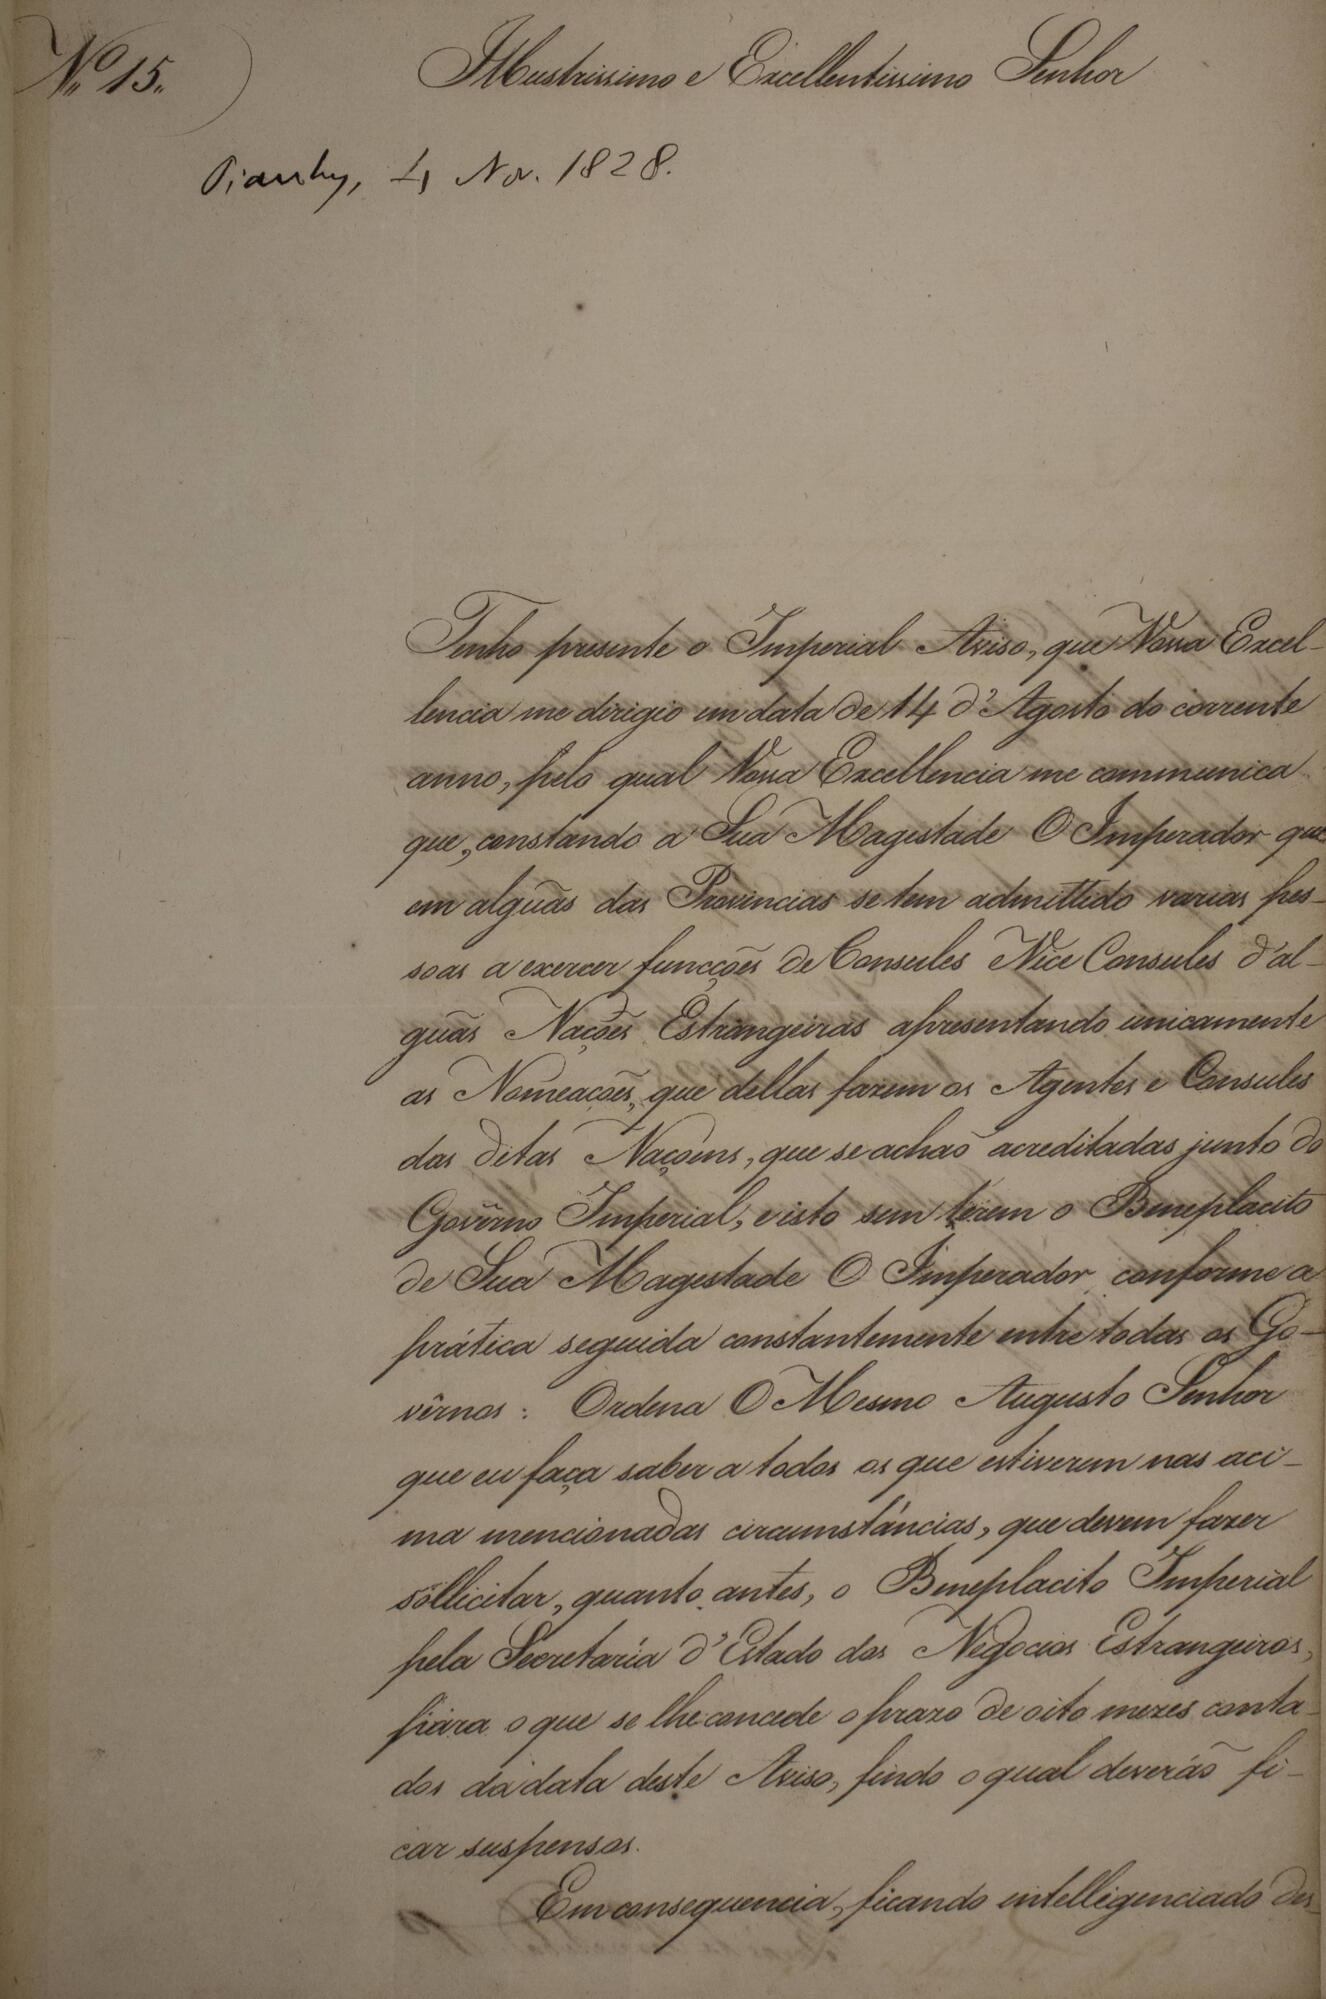 Nº 15.
Illustrissimo e Excellentissimo Senhor
Piauhy, 4 Nov. 1828.
Tenho presente o Imperial Aviso, que Vossa Excel-
lencia me dirigio em data de 14 d'Agosto do corrente
anno, pelo qual Vossa Excellencia me communica
que, constando a Sua Magestade O Imperador que
em alguãs das Provincias se tem admittido varias pes-
soas a exercer funcções de Consules Vice Consules d'al-
guãs Nações Estrangeiras apresentando unicamente
as Nomeações, que dellas fazem os Agentes e Consules
das ditas Naçoens, que se achaõ acreditadas junto do
Govêrno Imperial, e isto sem terem o Beneplacito
de Sua Magestade O Imperador, conforme a
prática seguida constantemente entre todos os Go-
vêrnos: Ordena O Mesmo Augusto Senhor
que eu faça saber a todos os que estiverem nas aci-
ma mencionadas circumstáncias, que devem fazer
sollicitar, quanto antes, o Beneplacito Imperial
pela Secretaría d'Estado dos Negocios Estrangeiros,
para o que se lhe concede o prazo de oito mezes conta-
dos da data deste Aviso, findo o qual deveráõ fi-
car suspensos.
Em consequencia, ficando intelligenciado des-